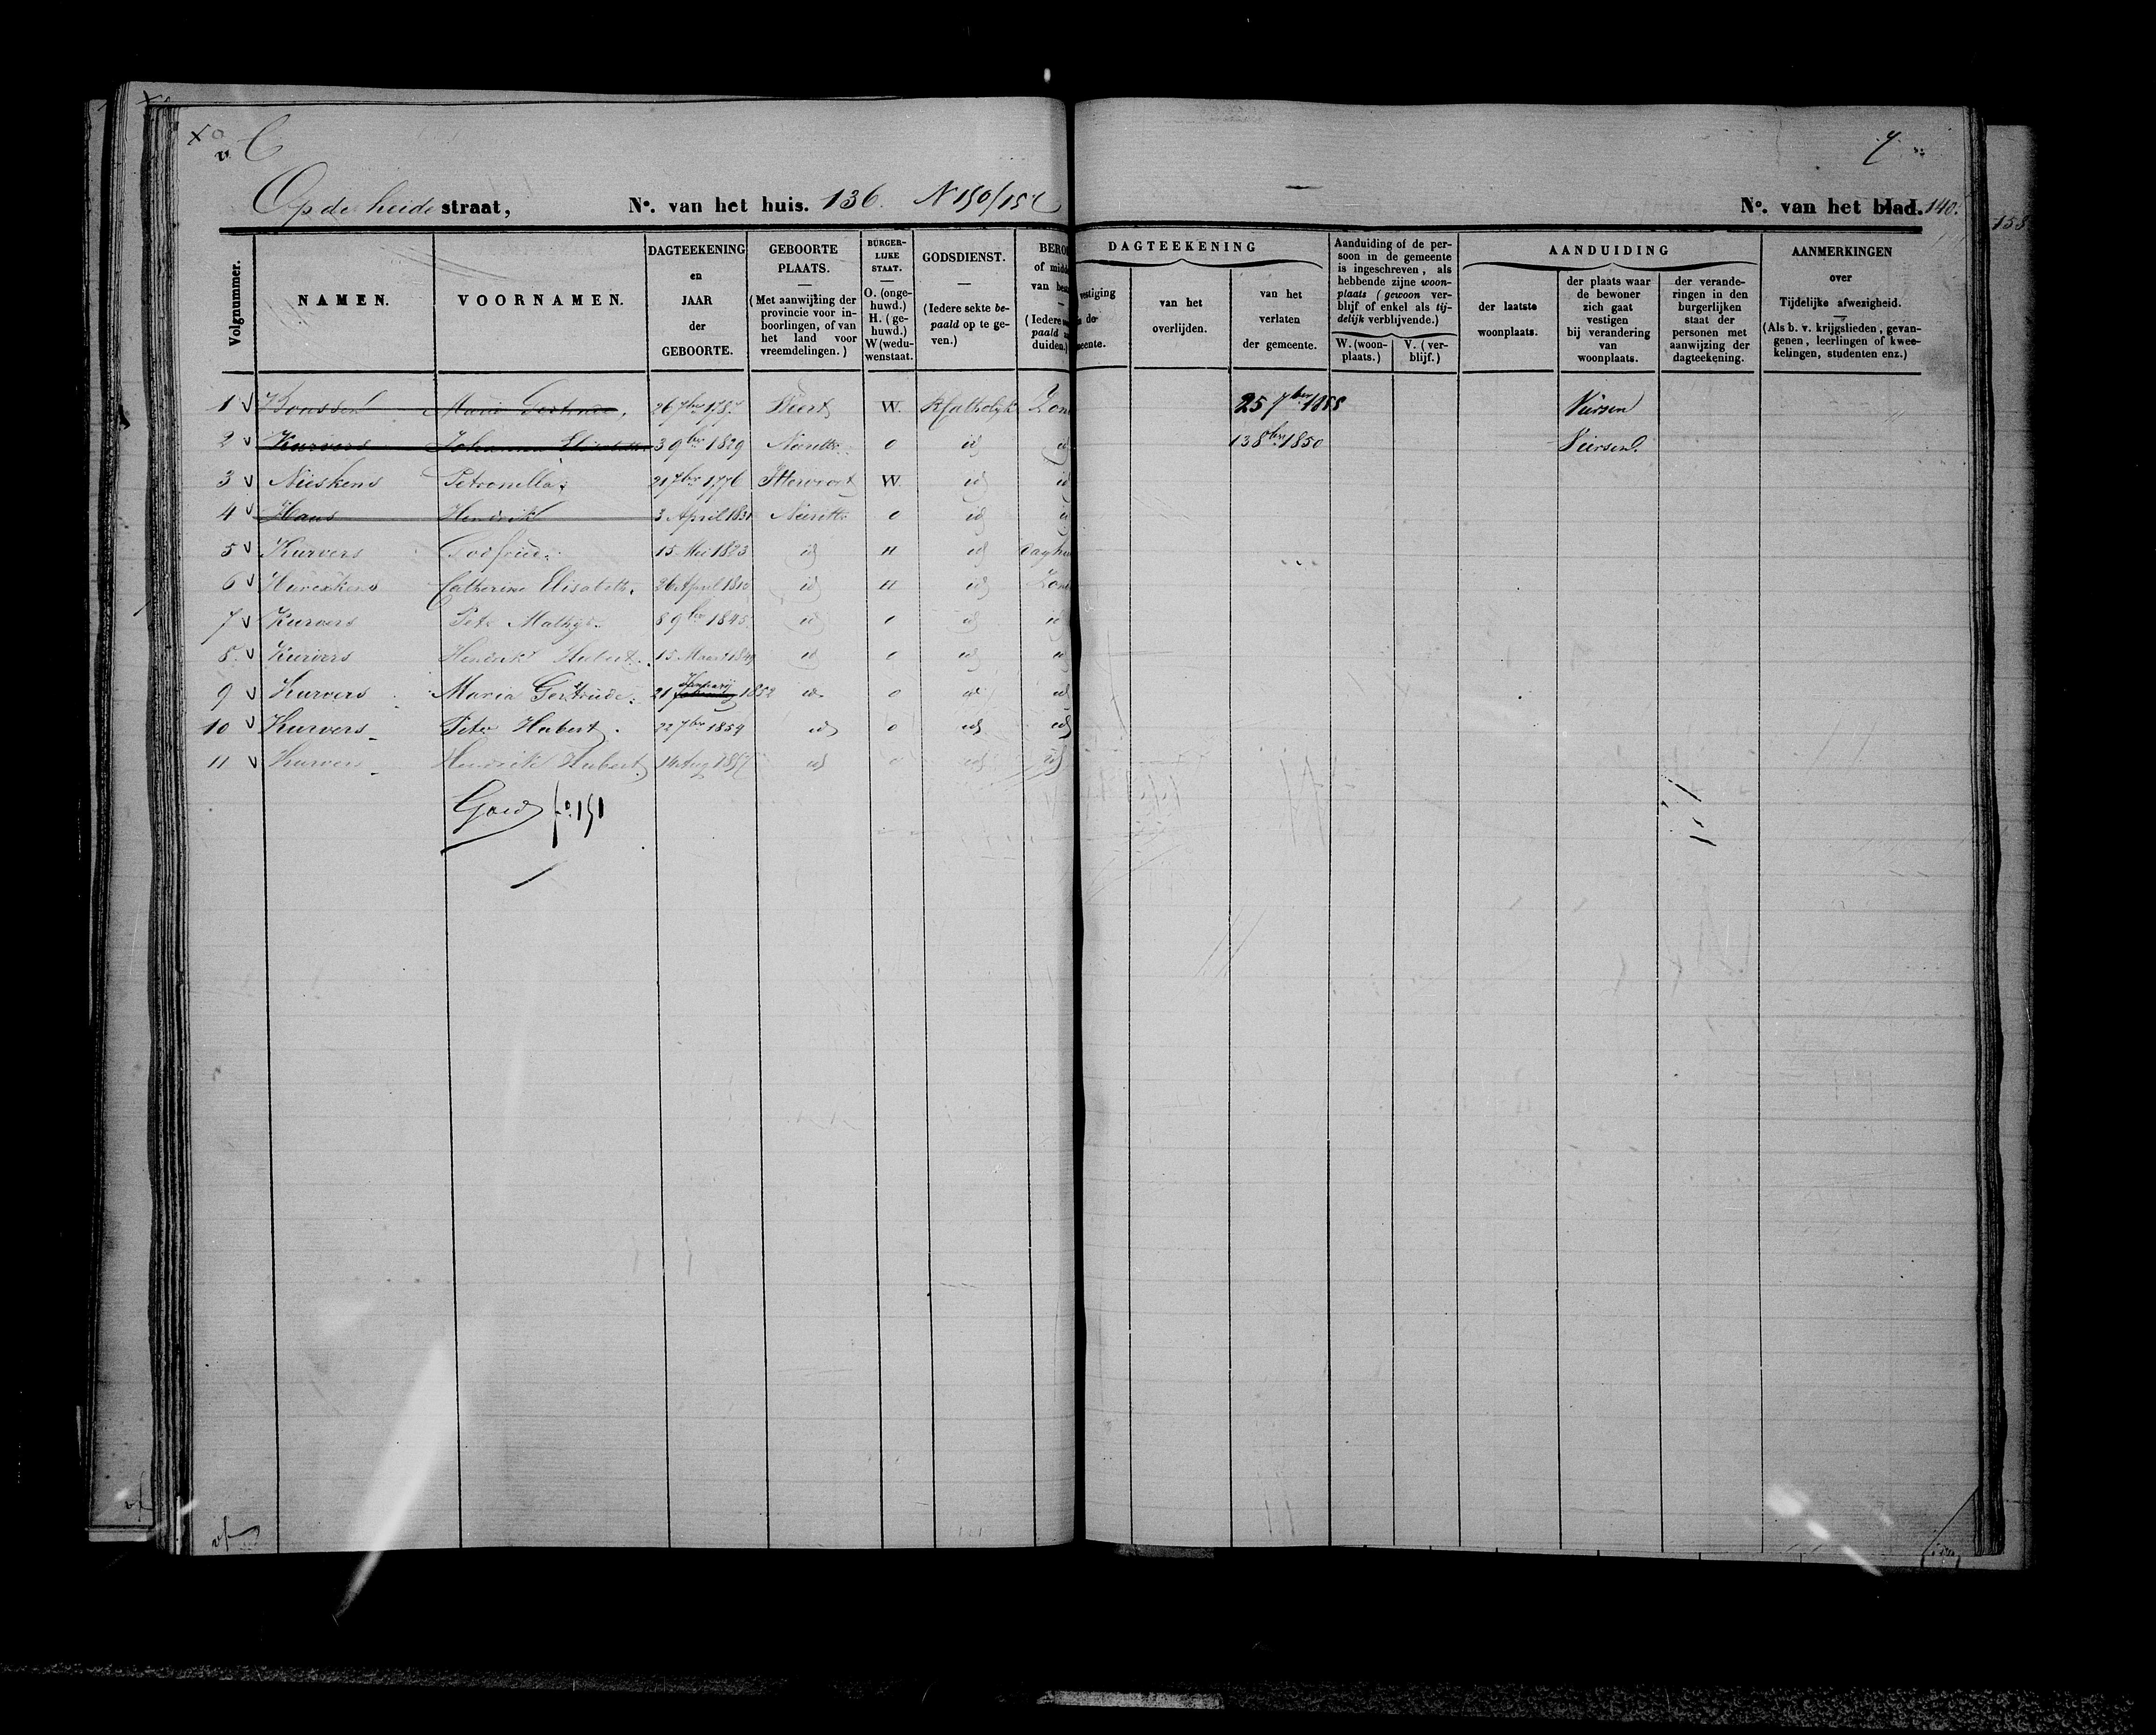 C
Op de heide straat, No. van het huis. 136. N 150/151
No. van het blad. 140.
158
Volgnummer.
NAMEN.
VOORNAMEN.
DAGTEEKENING en JAAR der GEBOORTE.
GEBOORTE PLAATS. (Met aanwijzing der provincie voor inboorlingen, of van het land voor vreemdelingen.)
BURGERLIJKE STAAT. O. (ongehuwd.) H. (gehuwd.) W (weduwenstaat.
GODSDIENST. (Iedere sekte bepaald op te geven.)
BERO
of midd
van best
(Iedere
paald
duiden.)
DAGTEEKENING
vestiging
de
meente.
van het overlijden.
van het verlaten der gemeente.
Aanduiding of de persoon in de gemeente is ingeschreven, als hebbende zijne woonplaats (gewoon verblijf of enkel als tijdelijk verblijvende.)
W. (woonplaats.)
V. (verblijf.)
AANDUIDING
der laatste woonplaats.
der plaats waar de bewoner zich gaat vestigen bij verandering van woonplaats.
der veranderingen in den burgerlijken staat der personen met aanwijzing der dagteekening.
AANMERKINGEN over Tijdelijke afwezigheid. (Als b. v. krijgslieden, gevangenen, leerlingen of kweekelingen, studenten enz.)
1 v Maria Gertrude. Weert W. RKatholyk Zon 25 7ber 1855 Viersen
2 v Kurvers Johanna Elisabeth 3 9ber 1829 Neeritter O id id 13 8bre 1850 Viersen
3 v Nieskens Petronella 21 7ber 1776 Ittervoort W. id id
4 v Hans Hendrik 3 April 1831 Neeritter O id id
5 v Kurvers Godfried. 15 Mei 1823 id H id daghu
6 v Catherine Elisabeth. 26 April 1810 id H id Zon
7 v Kurvers Peter Mathijs 8 9ber 1845 id O id id
8 v Kurvers Hendrik Hubert. 15 Maart 1849 id O id id
9 v Kurvers Maria Gertrude. 21 1852 id O id id
10 v Kurvers Peter Hubert. 22 7ber 1854 id O id id
11 v Kurvers Hendrik Hubert. 14 Aug 1857 id O id id
fo. 151